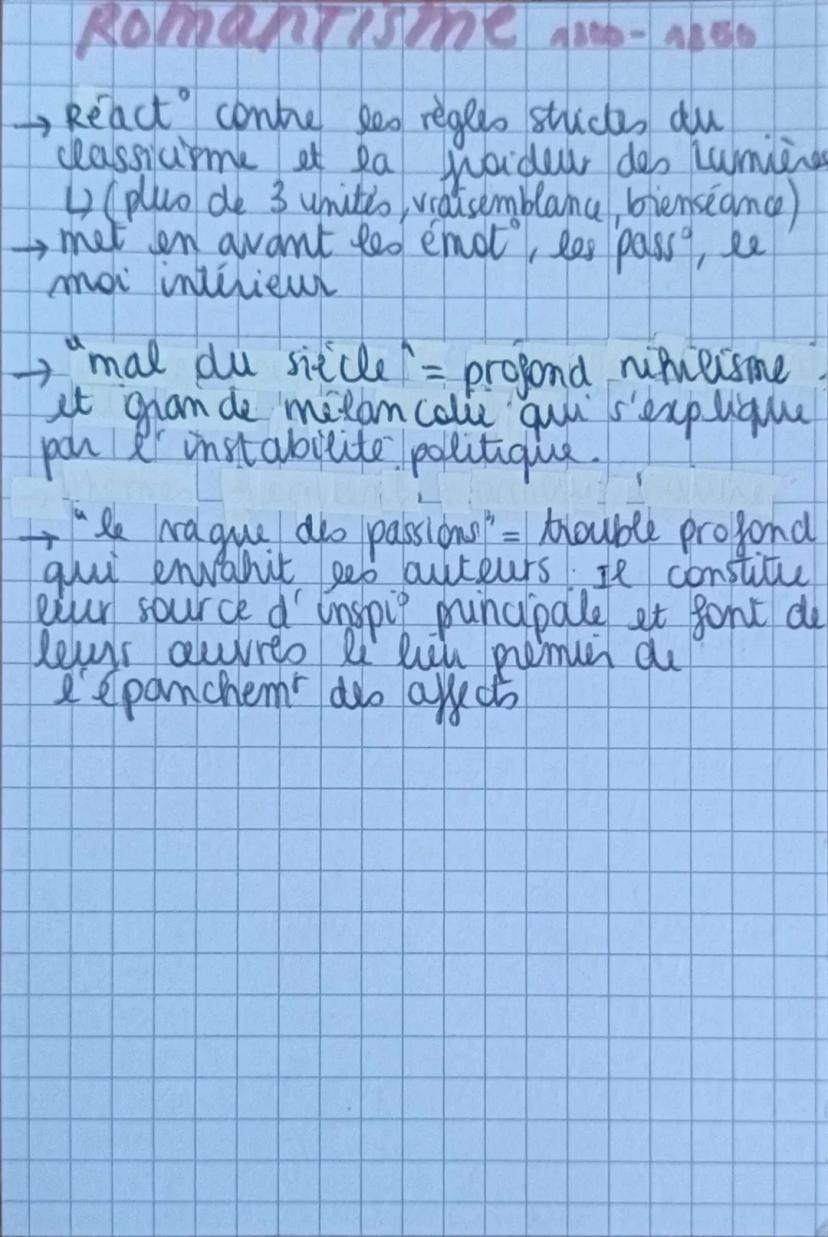 ROMANTISME 1800-1850
→ Réact° contre les règles strictes du
classicisme et la froideur des Lumières
↳ (plus de 3 unités, vraisemblance, bienséance)
→ met en avant les émot°, les pass°, le
moi intérieur
→ "mal du siècle" = profond nihilisme
et grande mélancolie qui s'explique
par l'instabilité politique.
→ "le vague des passions" = trouble profond
qui envahit les auteurs. Il constitue
leur source d'inspi° principale et font de
leurs œuvres le lieu premier de
l'épanchemt des affects